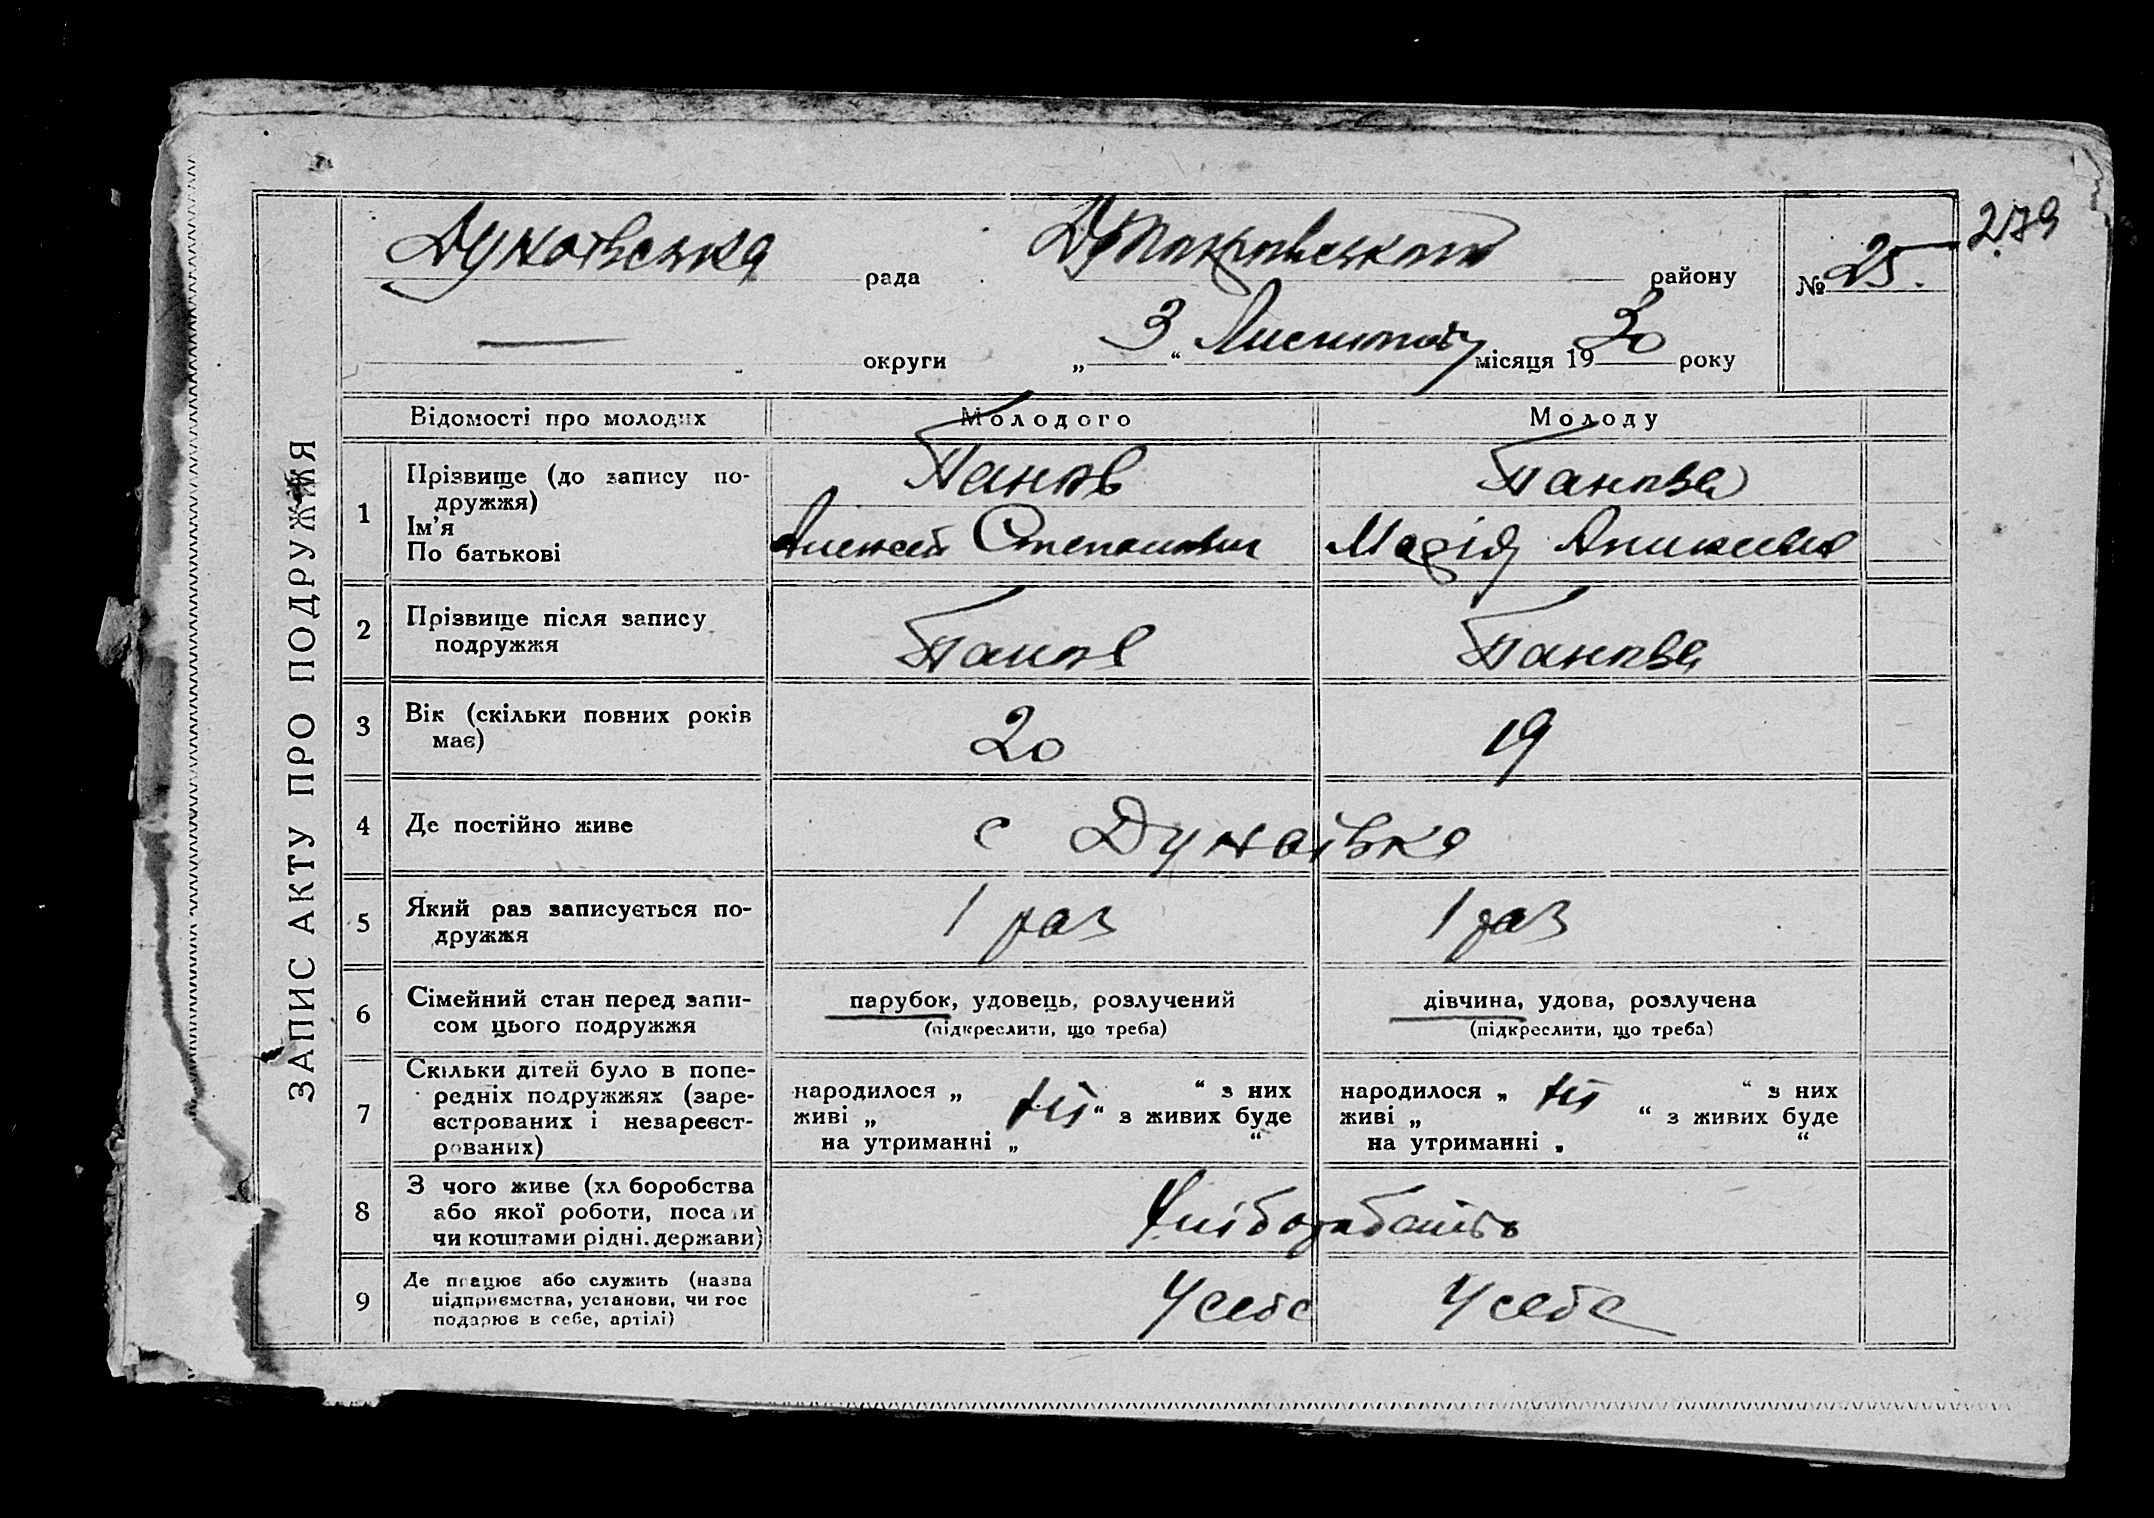 279
Дунаівська рада району № 25.
— округи „ 3 “ Листопаду місяця 19 30 року
ЗАПИС АКТУ ПРО ПОДРУЖЖЯ
Відомості про молодих Молодого Молоду
1 Прізвище (до запису по-
дружжя)
Ім’я
По батькові
Панов Панова
Алексей Степанович Марія
2 Прізвище після запису
подружжя
Панов Панова
3 Вік (скільки повних років
має)
20 19
4 Де постійно живе с Дунаівка
5 Який раз записується по-
дружжя
1 раз 1 раз
6 Сімейний стан перед запи-
сом цього подружжя
парубок, удовець, розлучений дівчина, удова, розлучена
(підкреслити, що треба) (підкреслити, що треба)
7 Скільки дітей було в попе-
редніх подружжях (заре-
єстрованих і незареєст-
рованих)
народилося „ “ з них народилося „ ні “ з них
живі „ ні “ з живих буде живі „ “ з живих буде
на утриманні „ “ на утриманні „ “
8 З чого живе (хл боробства
або якої роботи, посади
чи коштами рідні. держави)
Хліборобство
9 Де працює або служить (назва
підприємства, установи, чи гос
подарює в себе, артілі)
У себе У себе